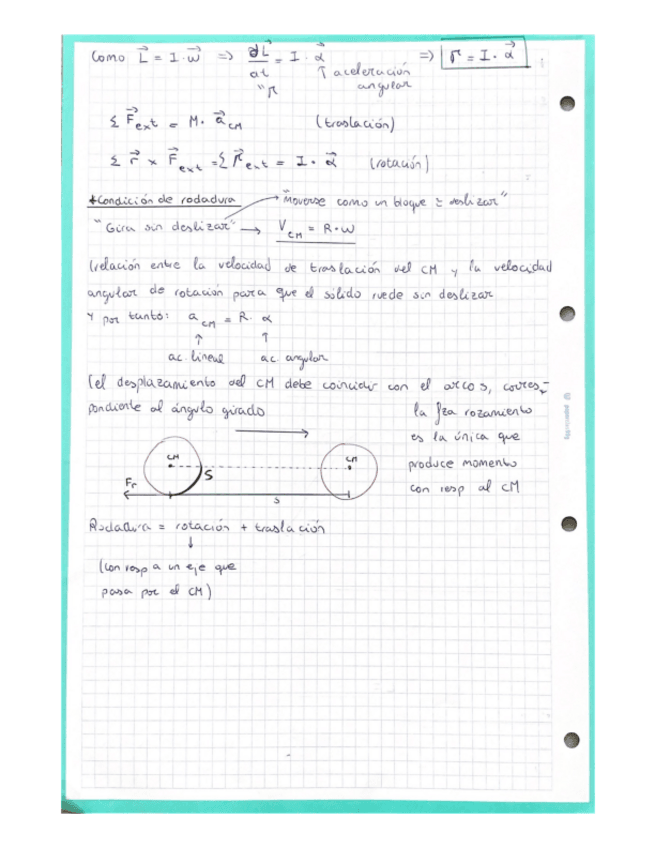 Como L⃗ = I · ω⃗ => dL⃗/dt = I · α⃗ => Γ = I · α⃗
"Γ ↑ aceleración
angular
Σ F⃗ext = M · a⃗CM (traslación)
Σ r⃗ x F⃗ext = Σ Γ⃗ext = I · α⃗ (rotación)
*Condición de rodadura "Moverse como un bloque = deslizar"
"Gira sin deslizar" → VCM = R·ω
(relación entre la velocidad de traslación del CM y la velocidad
angular de rotación para que el sólido ruede sin deslizar
Y por tanto: aCM = R · α
↑ ↑
ac. lineal ac. angular
(el desplazamiento del CM debe coincidir con el arco s, corres-
pondiente al ángulo girado
la fza rozamiento
es la única que
produce momento
con resp al CM
CM CM
S
Fr
s
Rodadura = rotación + traslación
↓
(con resp a un eje que
pasa por el CM)